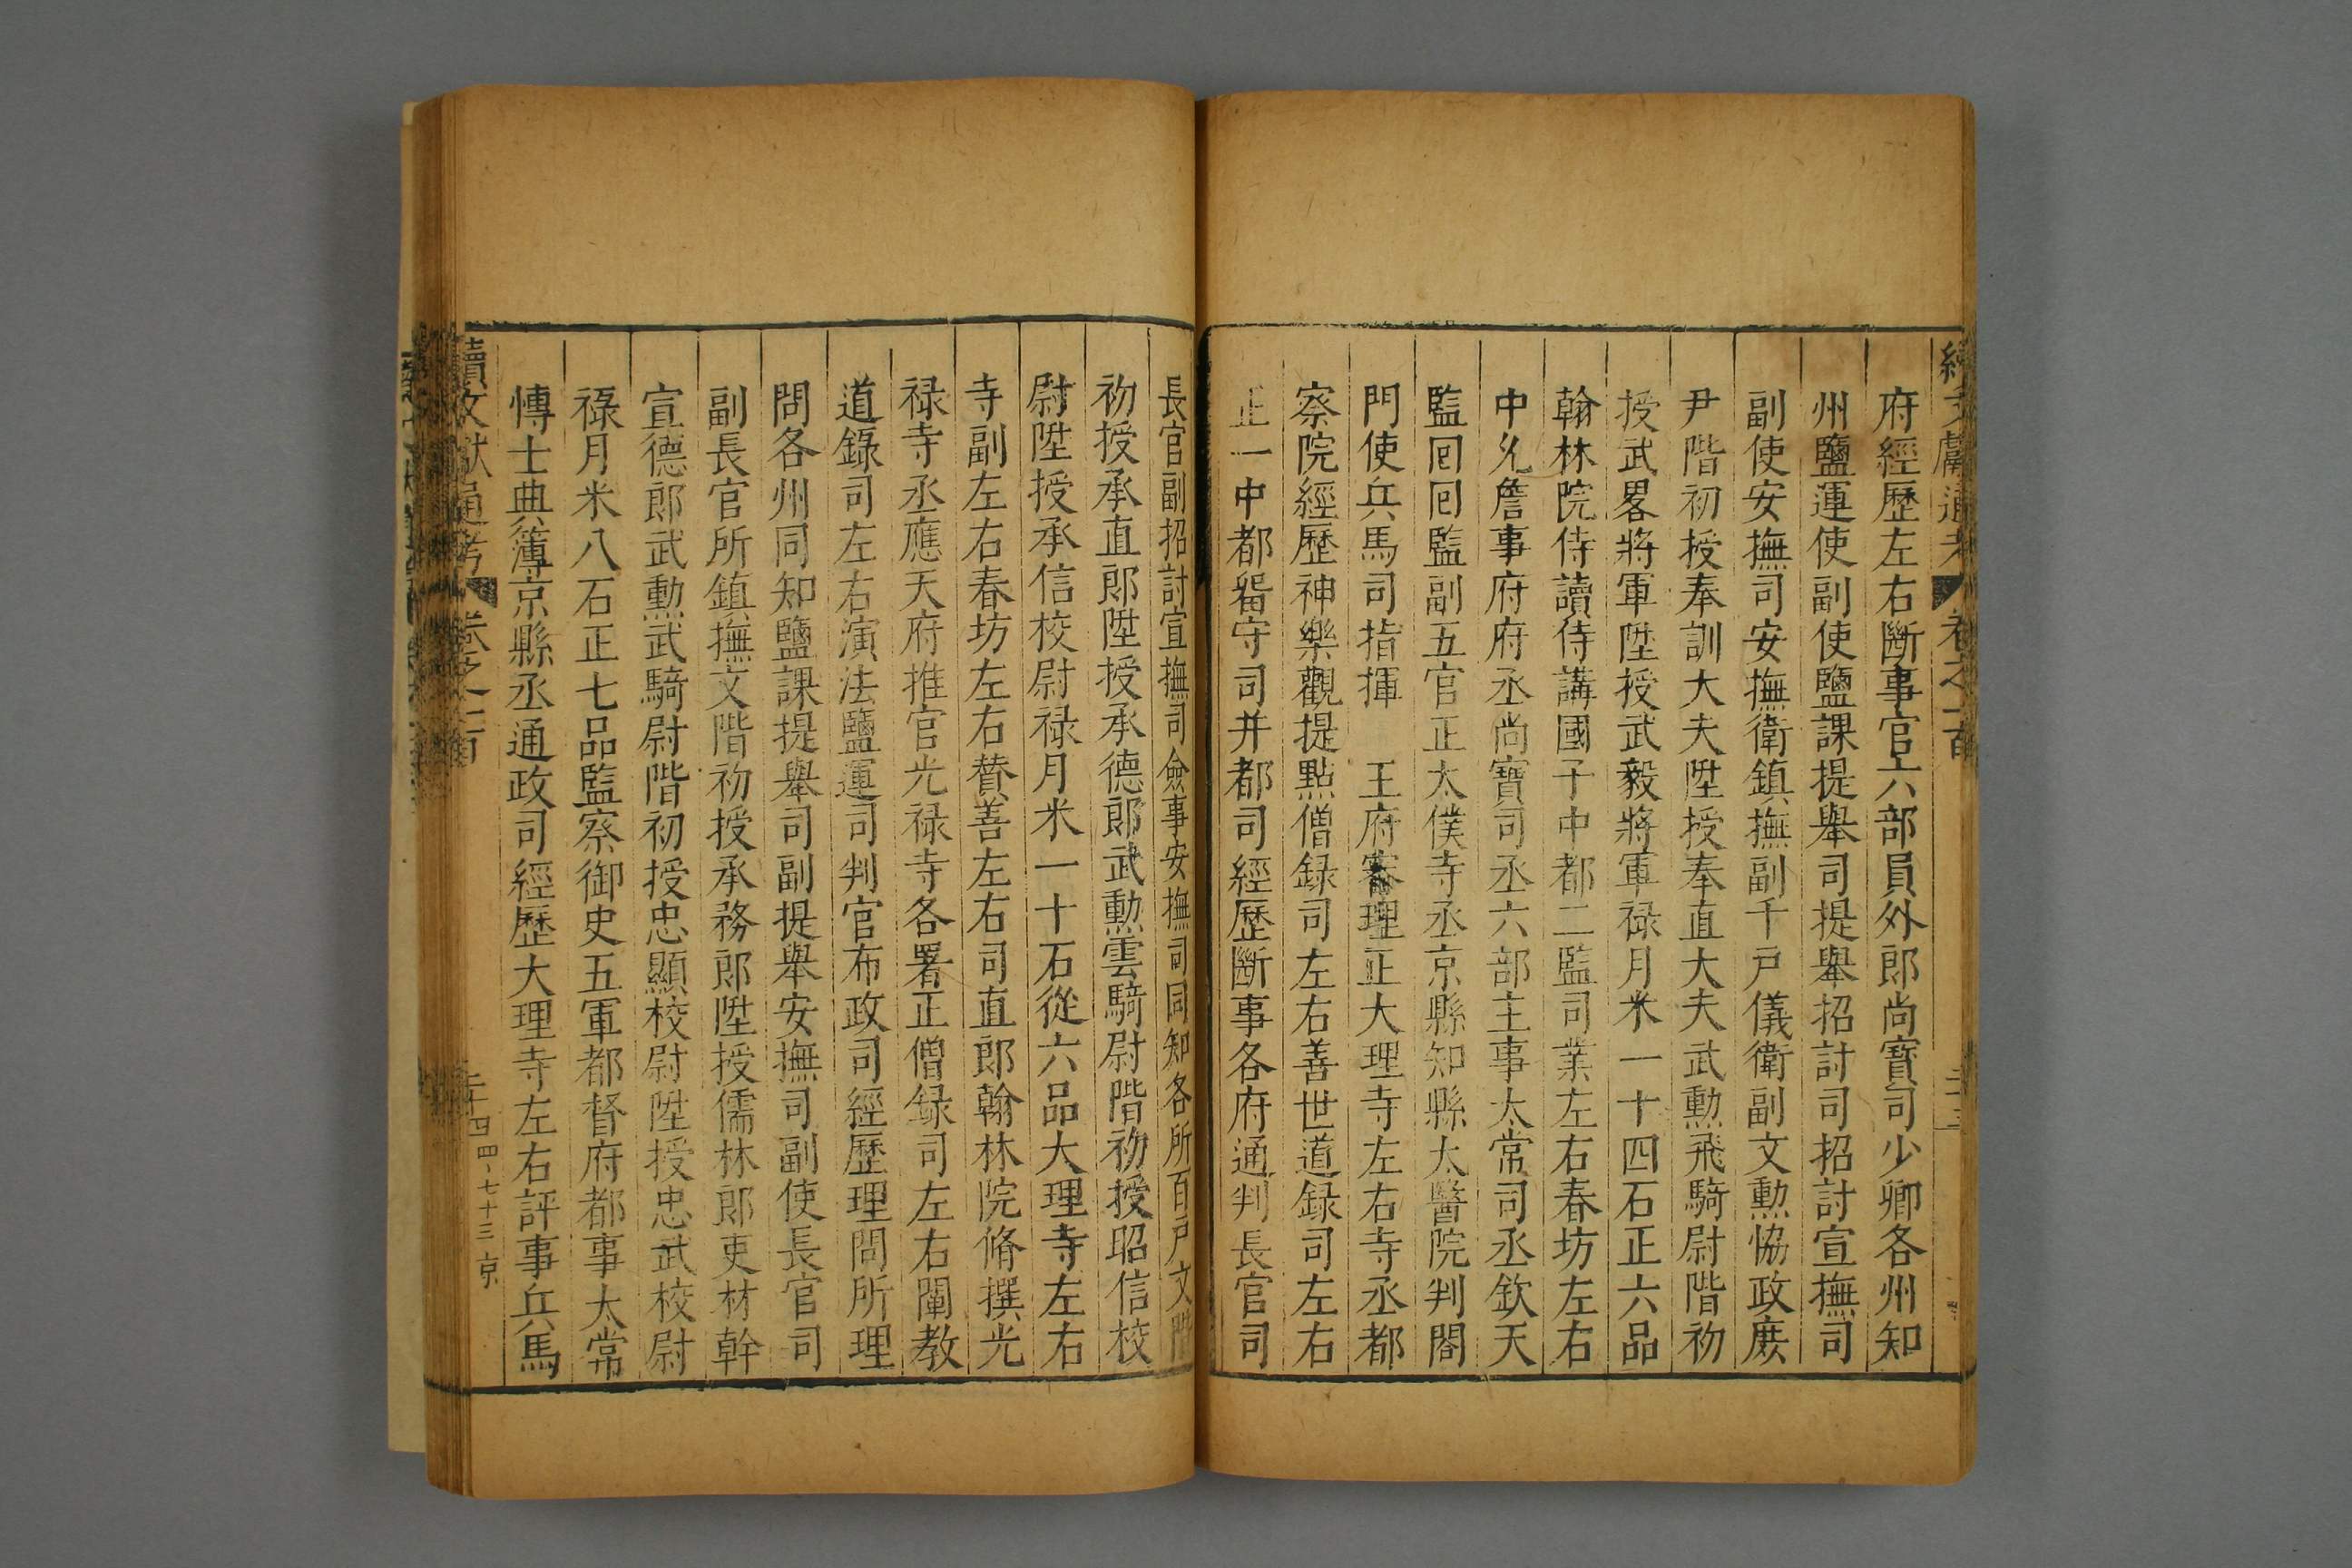 續文獻通考 卷之一百
府經歷左右斷事官六部員外郎尚寶司少卿各州知
州鹽運使副使鹽課提舉司提舉招討司招討宣撫司
副使安撫司安撫衛鎮撫副千戶儀衛副文勳協政庶
尹階初授奉訓大夫陞授奉直大夫武勳飛騎尉階初
授武畧將軍陞授武毅將軍祿月米一十四石正六品
翰林院侍讀侍講國子中都二監司業左右春坊左右
中允詹事府府丞尚寶司丞六部主事太常司丞欽天
監囘囘監副五官正太僕寺丞京縣知縣太醫院判閤
門使兵馬司指揮　王府審理正大理寺左右寺丞都
察院經歷神樂觀提點僧録司左右善世道録司左右
正一中都畱守司并都司經歷斷事各府通判長官司
長官副招討宣撫司僉事安撫司同知各所百戶文階
初授承直郎陞授承德郎武勳雲騎尉階初授昭信校
尉陞授承信校尉禄月米一十石從六品大理寺左右
寺副左右春坊左右贊善左右司直郎翰林院脩撰光
禄寺丞應天府推官光禄寺各署正僧録司左右闡教
道錄司左右演法鹽運司判官布政司經歷理問所理
問各州同知鹽課提舉司副提舉安撫司副使長官司
副長官所鎮撫文階初授承務郎陞授儒林郎吏材幹
宣德郎武勳武騎尉階初授忠顯校尉陞授忠武校尉
祿月米八石正七品監察御史五軍都督府都事太常
愽士典簿京縣丞通政司經歷大理寺左右評事兵馬
續文獻通考 卷之一百
四 七十三 京